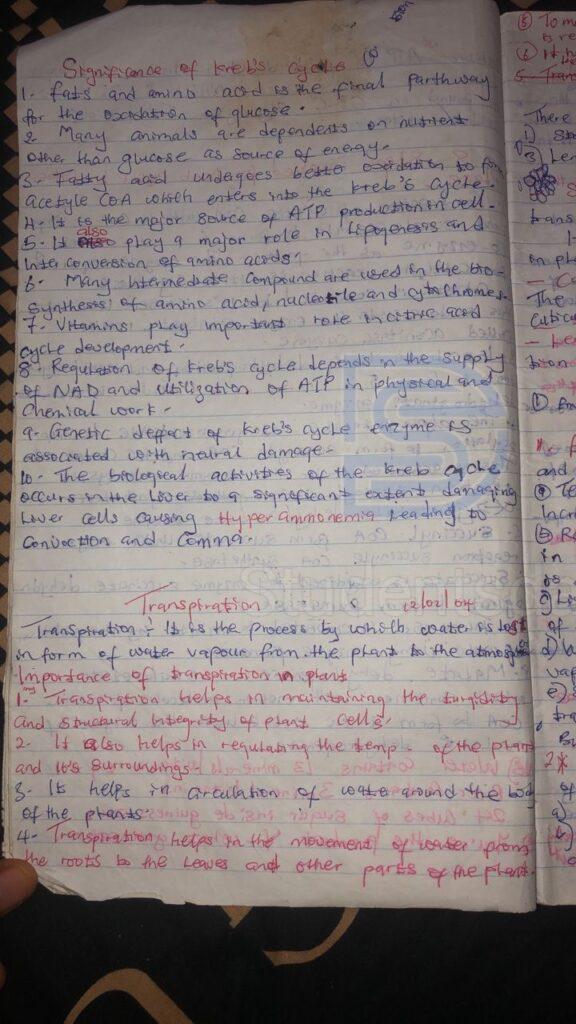 Significance of Kreb's Cycle
1- Fats and amino acid is the final parthway
for the oxidation of glucose.
2 Many animals are dependents on nutrient
other than glucose as source of energy.
3- Fatty acid undergoes beta oxidation to form
acetyle CoA which enters into the kreb's cycle.
4- It is the major source of ATP production in cell.
5- It also play a major role in lipogenesis and
Interconversion of amino acids.
6- Many Intermediate compound are used in the bio-
Synthesis of amino acid, nucleotile and cytochromes.
7- Vitamins play important role in citric acid
cycle development.
8- Regulation of kreb's cycle depends in the supply
of NAD and utilization of ATP in physical and
Chemical work-
9- Genetic deffect of kreb's cycle enzyme is
associated with neural damage-
10- The biological activities of the kreb cycle
occurs in the Liver to a significant extent damaging
Liver cells causing Hyperammonemia Leading to
Convoction and Comma.
Transpiration 12/02/04
Transpiration: It is the process by which water is lost
in form of water vapour from the plant to the atmosp
Importance of transpiration in plant
1- Transpiration helps in maintaining the turgidity
and structural Integrity of plant cells.
2- It also helps in regulating the temp. of the plant
and it's surroundings
3- It helps in circulation of water around the body
of the plants.
4- Transpiration helps in the movement of water from
the roots to the Leaves and other parts of the plant.
5 To m
6 It h
There
1) St
3) Len
trans
in pl
The
Cutic
and
Incr
in
of
vap
of
a)
b)